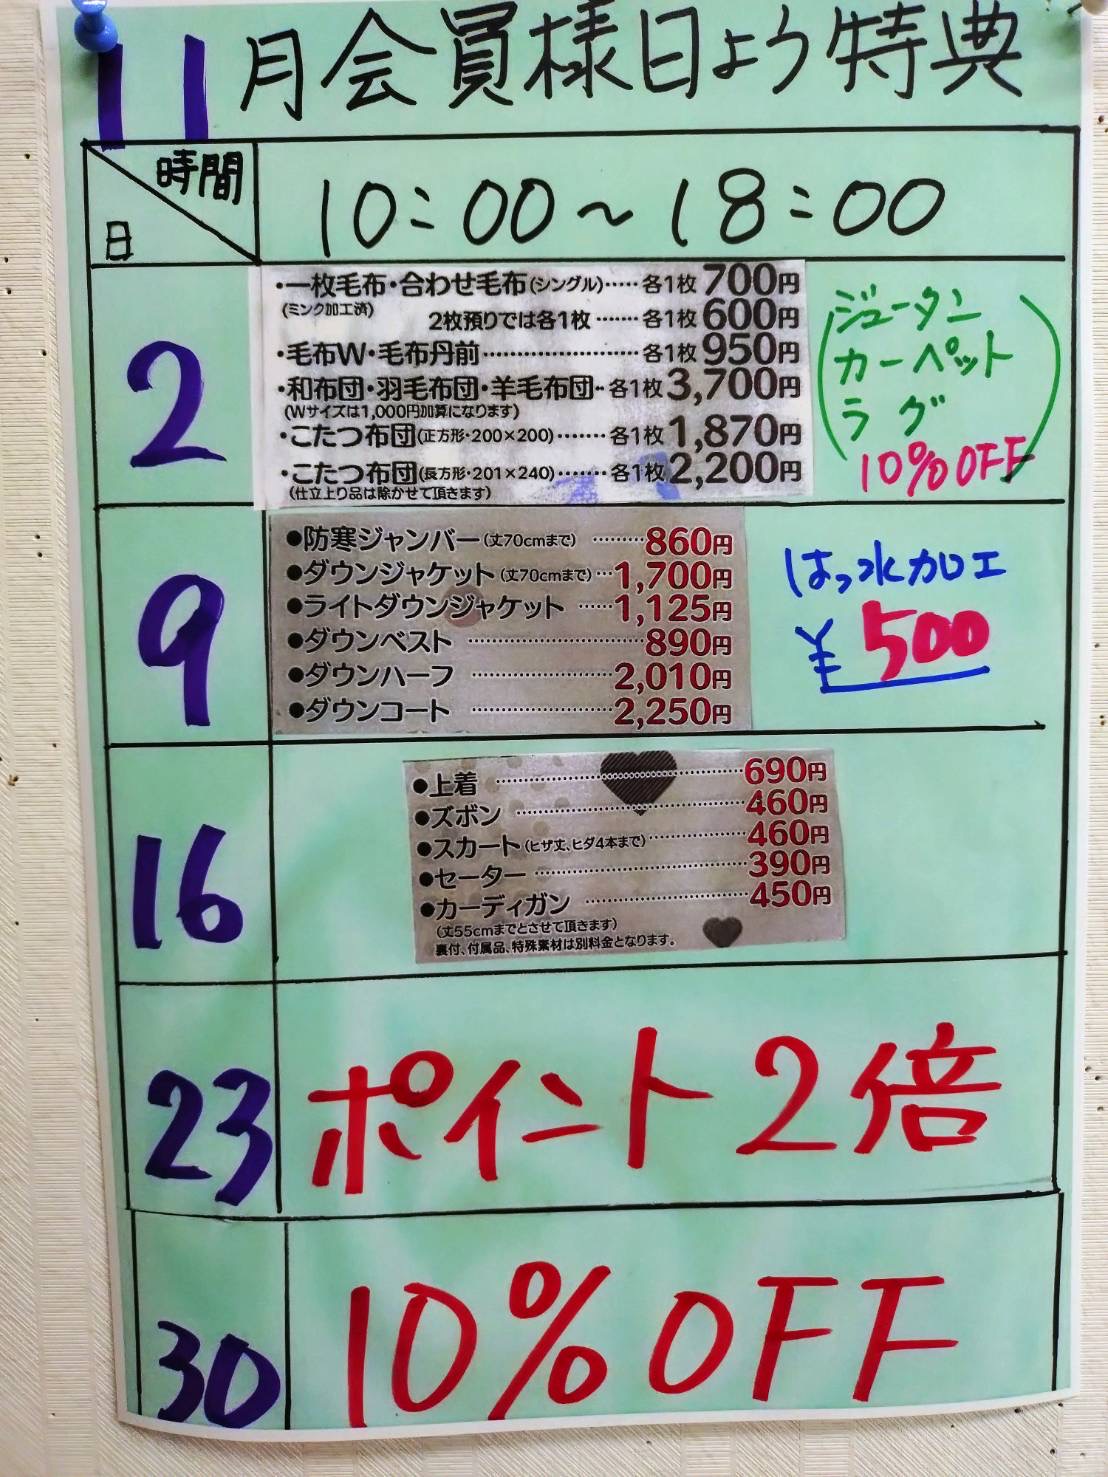 11月会員様日よう特典
時間
日
10:00〜18:00
2
・一枚毛布・合わせ毛布(シングル)……各1枚700円
(ミンク加工済)
2枚預りでは各1枚……各1枚600円
・毛布W・毛布丹前………………各1枚950円
・和布団・羽毛布団・羊毛布団…各1枚3,700円
(Wサイズは1,000円加算になります)
・こたつ布団(正方形・200×200)………各1枚1,870円
・こたつ布団(長方形・201×240)………各1枚2,200円
(仕立上り品は除かせて頂きます)
ジュータン
カーペット
ラグ
10%OFF
9
●防寒ジャンバー(丈70cmまで)………860円
●ダウンジャケット(丈70cmまで)…1,700円
●ライトダウンジャケット……1,125円
●ダウンベスト………………890円
●ダウンハーフ………………2,010円
●ダウンコート………………2,250円
はっ水加工
¥500
16
●上着………………690円
●ズボン………………460円
●スカート(ヒザ丈、ヒダ4本まで)………460円
●セーター………………390円
●カーディガン………………450円
(丈55cmまでとさせて頂きます)
裏付、付属品、特殊素材は別料金となります。
23
ポイント2倍
30
10%OFF